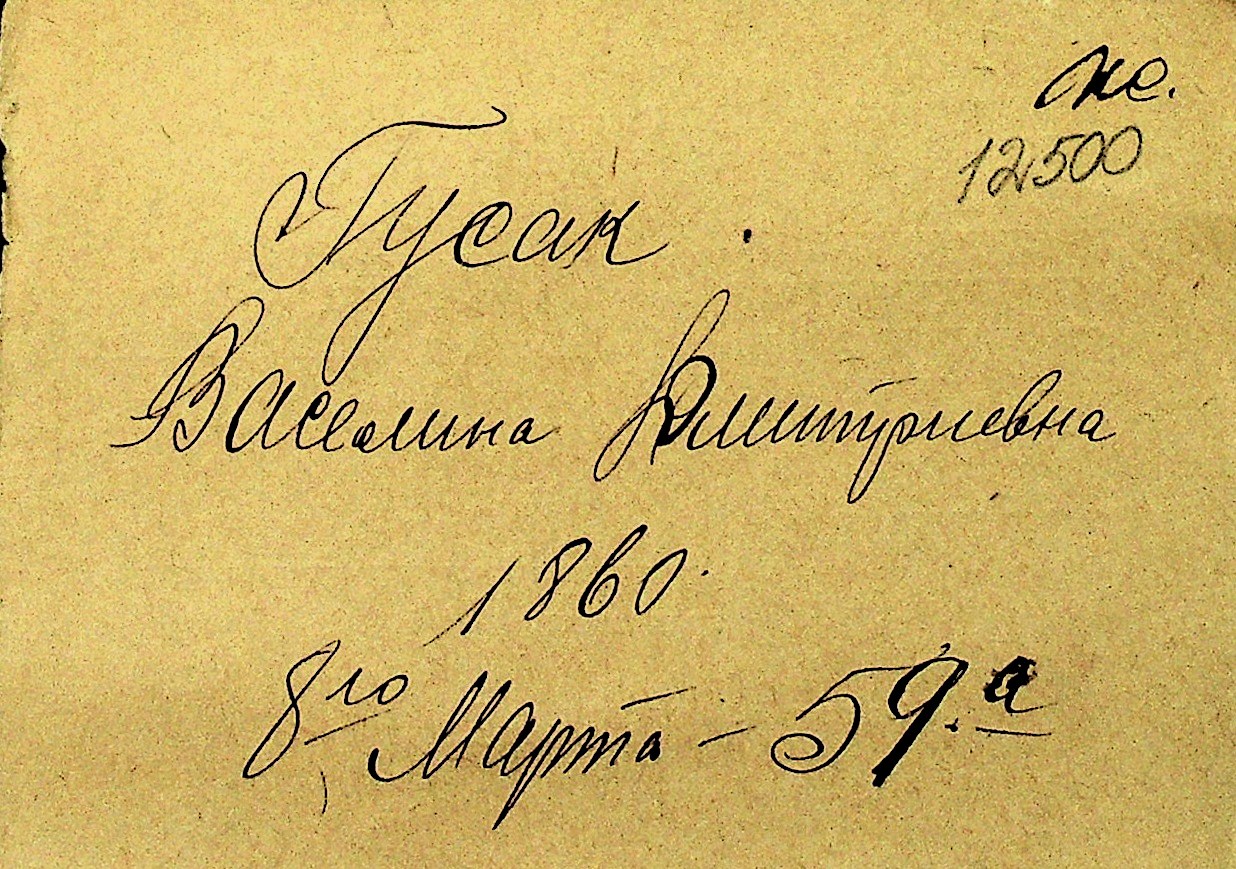 ж.
12500
Гусак.
Васелина Дмитриевна
1860.
8го Марта - 59.а